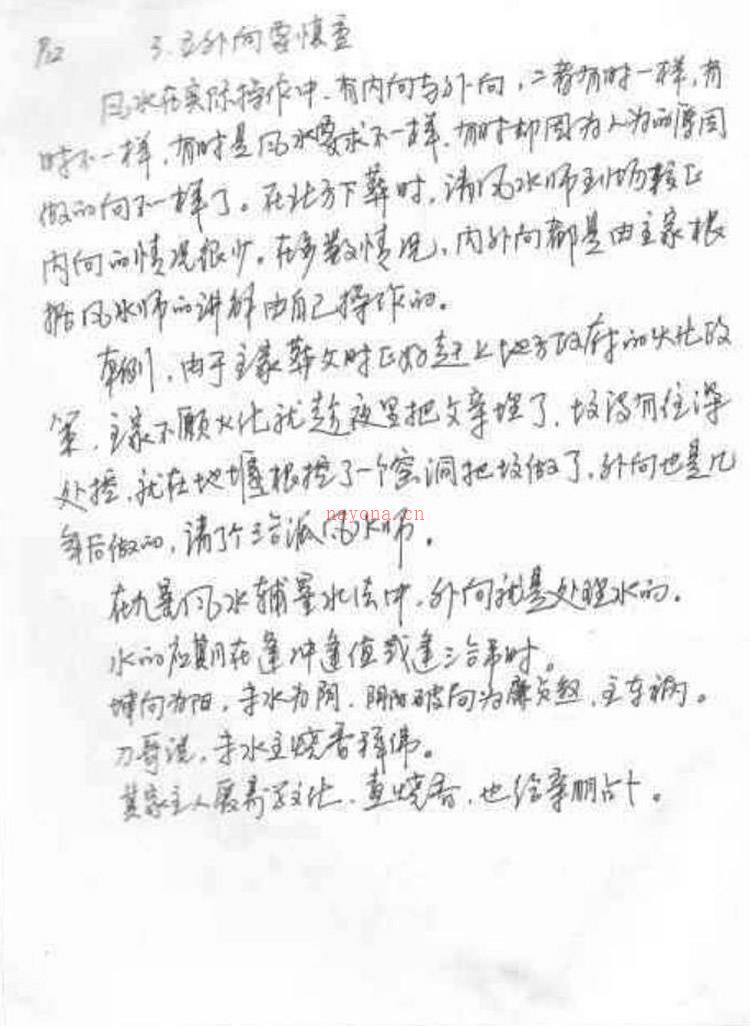 P12 3.立外向要慎重
风水在实际操作中,有内向与外向,二者有时一样,有
时不一样,有时是风水要求不一样,有时却因为人为的原因
做的向不一样了。在北方下葬时,请风水师到场较正
内向的情况很少。在多数情况,内外向都是由主家根
据风水师的讲解由自己操作的。
本例,由于主家葬父时正好赶上地方政府的火化政
策,主家不愿火化就趁夜里把父亲埋了,坟没有往深
处挖,就在地堰根挖了一个窑洞把坟做了,外向也是几
年后做的,请了个三合派风水师。
nayona.cn
在九星风水辅星水法中,外向就是处理水的。
水的应期在逢冲逢值或逢三合吊时。
坤向为阳,辛水为阴,阴阳破向为廉贞煞,主车祸。
刀哥说,辛水主烧香拜佛。
其家主人爱好文化,查烧香,也给亲朋占卜。